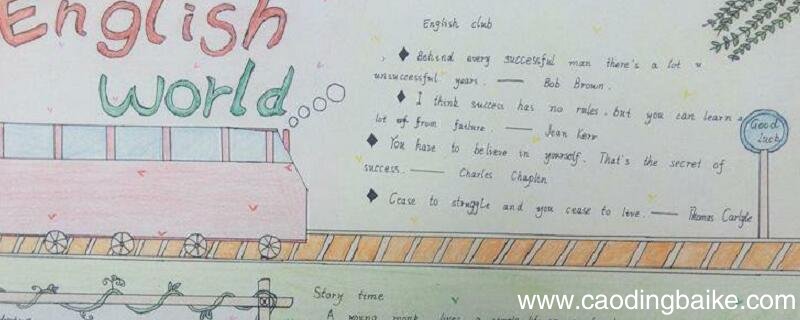 English
World
English club
◆ Behind every successful man there's a lot u
unsuccessful years. —— Bob Brown.
◆ I think success has no rules, but you can learn a
lot of from failure. —— Jean Kerr
◆ You have to believe in yourself. That's the secret of
success. —— Charles Chaplin
◆ Cease to struggle and you cease to live. —— Thomas Carlyle
Good
luck
Story time
A young monk lives a
www.caodingbaike.com